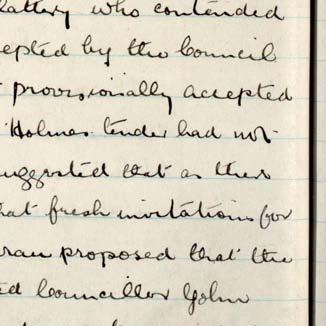 who contended
epted by the Council
provisionally accepted
Holmes tender had not
uggested that as there
hat fresh invitations for
proposed that the
ed Councillor John